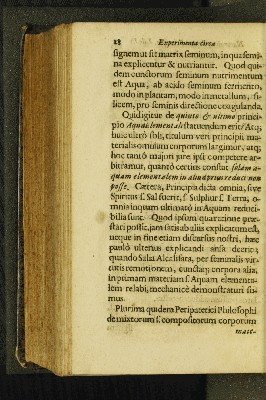 18 Experimenta circa
signem ut sit matrix seminum, in qua semi-
na explicentur & nutriantur. Quod qui-
dem cunctorum seminum nutrimentum
est Aqua, ab acido seminum fermento,
modo in plantam, modo in metallum, si-
licem, pro seminis directione coagulanda.
Quid igitur de quinto & ultimo princi-
pio Aqua elementali statuendum erit? Atq;
huic ultrò sbli, titulum veri principii ma-
terialis omnium corporum largimur, atq;
hoc tantò majori jure ipsi competere ar-
bitramur, quantò certius constat solam a-
quam elementalem in aliud prius reduci non
posse. Cætera, Principia dicta omnia, sive
Spiritus s. Sal fuerit, s. Sulphur s. Terra, o-
mnia inquam ultimatò in Aquam reduci-
bilia sunt. Quod ipsum qua ratione præ-
stari possit, jam satis ubi aliis explicatum est,
neque in fine etiam discursus nostri, hæc
paulò ulterius explicandi ansa deerit;
quando Salia Alcalisata, per seminalis vir-
tutis remotionem, cunctaq; corpora alia,
in primam materiam s. Aquam elementa-
lem relabi, mechanicè demonstraturi su-
mus.
Plurima quidem Peripatetici Philosophi
de mixtorum s. compositorum corporum
mate-